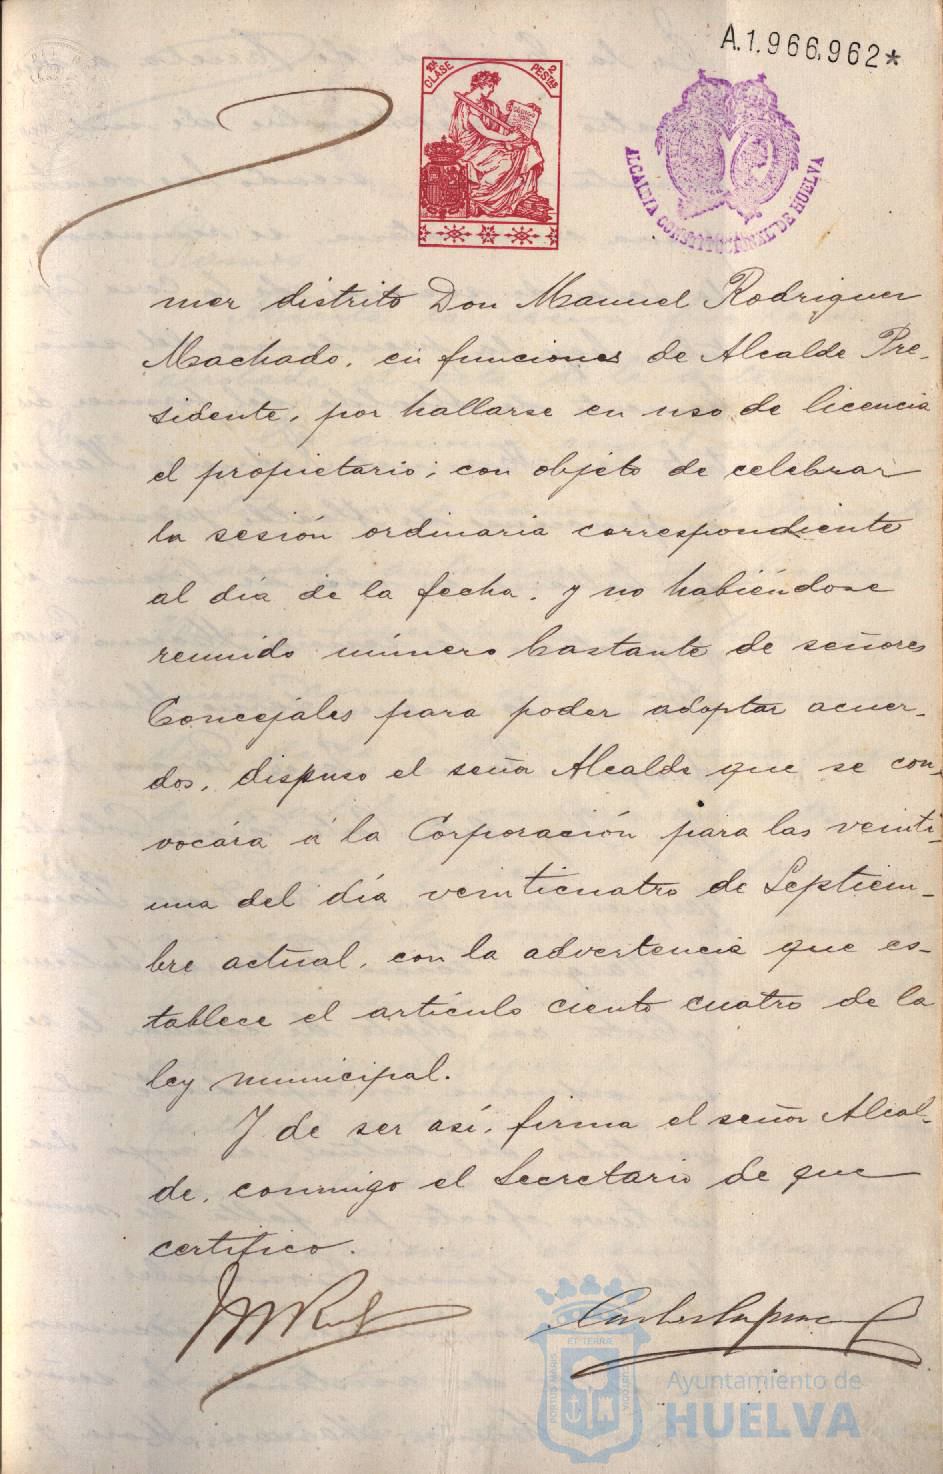 A.1.966,962*
10ª CLASE
2 PESTAS
ALCALDIA CONSTITUCIONAL DE HUELVA
mer distrito Don Manuel Rodriguez
Machado, en funciones de Alcalde Pre-
sidente, por hallarse en uso de licencia
el propietario; con objeto de celebrar
la sesión ordinaria correspondiente
al día de la fecha, y no habiéndose
reunido número bastante de señores
Concejales para poder adoptar acuer-
dos, dispuso el señor Alcalde que se con-
vocára á la Corporación para las veinti-
una del día veinticuatro de Septiem-
bre actual, con la advertencia que es-
tablece el artículo ciento cuatro de la
ley municipal.
Y de ser así, firma el señor Alcal-
de, conmigo el Secretario de que
certifico.
ET TERRÆ
PORTUS MARIS
CUSTODIA
Ayuntamiento de
HUELVA